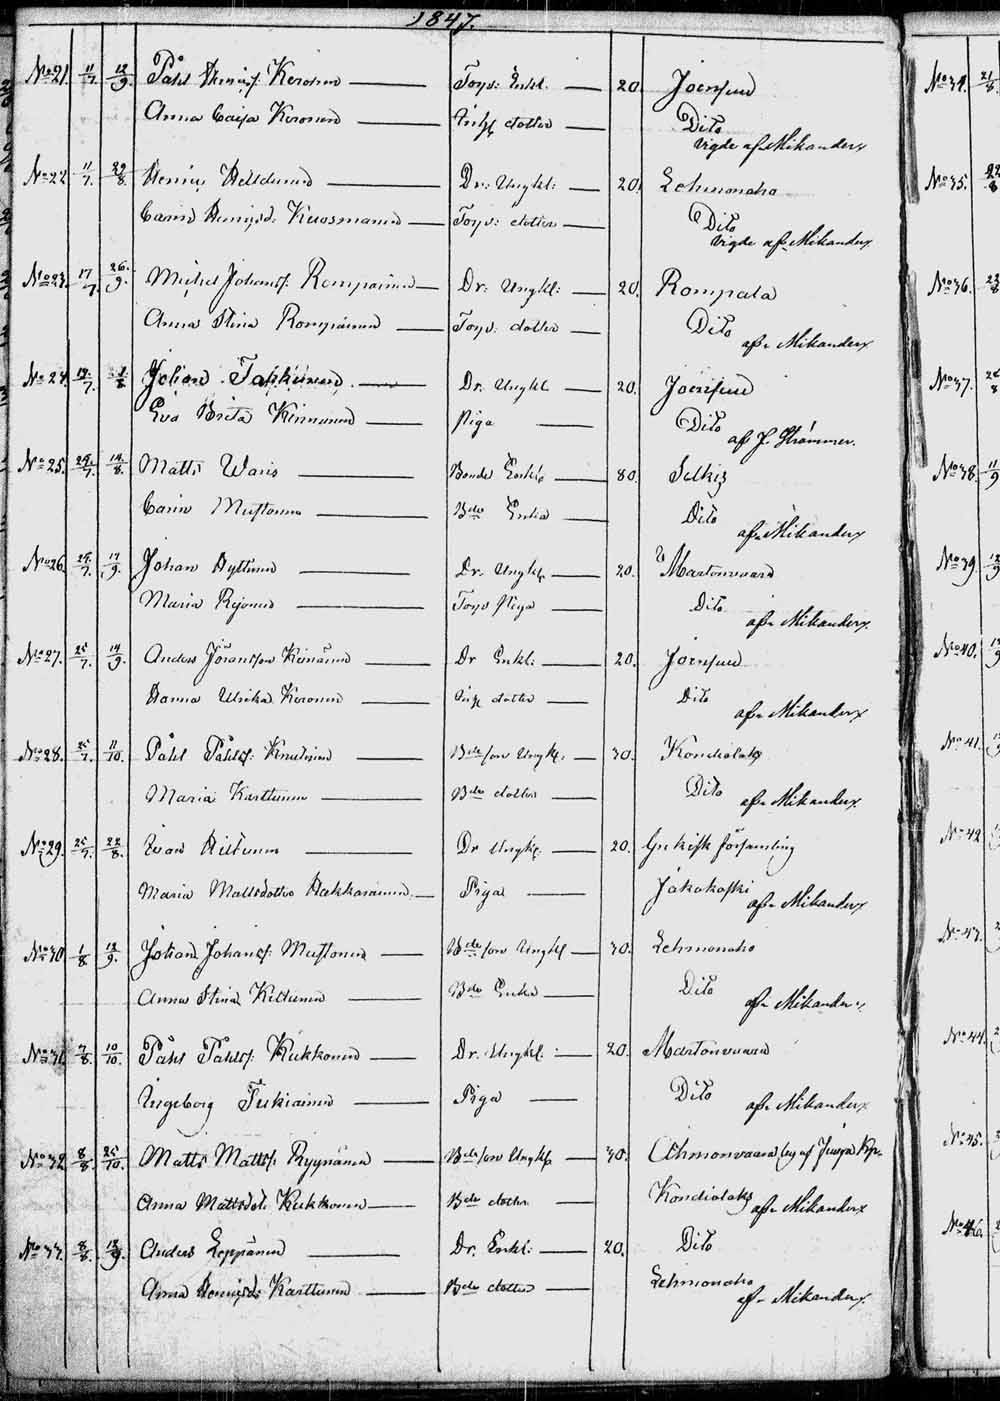 1847.
No 21. 11/7. 12/9. Påhl Henricsf. Keronen — Torp: Enkl. — 20. Joensuu
Anna Caisa Keronen — dotter — Dito
vigde af Mikander
No 22 11/7. 29/8. Henric — Dr: Ungkl: — 20. Lehmonaho
Carin Henricsd: Kuosmanen — Torp: dotter — Dito
vigde af Mikander
No 23. 17/7. 26/9. Michel Johansf. Rompainen — Dr: Ungkl: — 20. Rompala
Anna Stina Rompainen — Torp: dotter — Dito
af Mikander
No 24. /7. /8. Johan — Dr. Ungkl — 20. Joensuu
Eva Brita Keinänen — Piga — Dito
af J. Strömmer.
No 25. /7. 14/8. Matts Waris — Bonde Enkl — 80. Selkie
Carin Mustonen — Bde Enka — Dito
af Mikander
No 26. /7. 17/9. Johan Hyttinen — Dr. Ungkl — 20. Martonvaara
Maria — Torp Piga — Dito
af Mikander.
No 27. 25/7. 19/9. Anders Göransson Keinänen — Dr Enkl: — 20. Joensuu
Hanna Ulrika Keronen — dotter — Dito
af Mikander
No 28. 25/7. 11/10. Påhl Påhlsf: Knutinen — Bde son Ungkl. — 30. Kondiolaks
Maria Karttunen — Bde dotter — Dito
af Mikander.
No 29. 25/7. 22/8. Ivan — Dr Ungkl. — 20. Grekisk församling
Maria Mattsdotter Hakkarainen — Piga — Jakokoski
af Mikander
No 30 1/8. 12/9. Johan Johansf: Mustonen — Bde son Ungkl — 30. Lehmonaho
Anna Stina Kettunen — Bde Enka — Dito
af Mikander
No 31. /8. 10/10. Påhl Påhlsf. Kukkonen — Dr. Ungkl: — 20. Martonvaara
Ingeborg Tukiainen — Piga — Dito
af Mikander
No 32 8/8. 25/10. Matts Mattsf. Ryynänen — Bde son Ungkl — 30. Ahmonvaara by af Juuga
Anna Mattsdotr Kukkonen — Bde dotter — Kondiolaks
af Mikander
No 33. 8/8. 12/9. Anders Leppänen — Dr. Enkl: — 20. Dito
Anna Henricsd: Karttunen — Bde dotter — Lehmonaho
af Mikander
No 34. 21/8.
No 35. 22/8
No 36. 22/8
No 37.
No 38. 11/9
No 39. 12/9
No 40.
No 41.
No 42
No 43.
No 44.
No 45.
No 46.